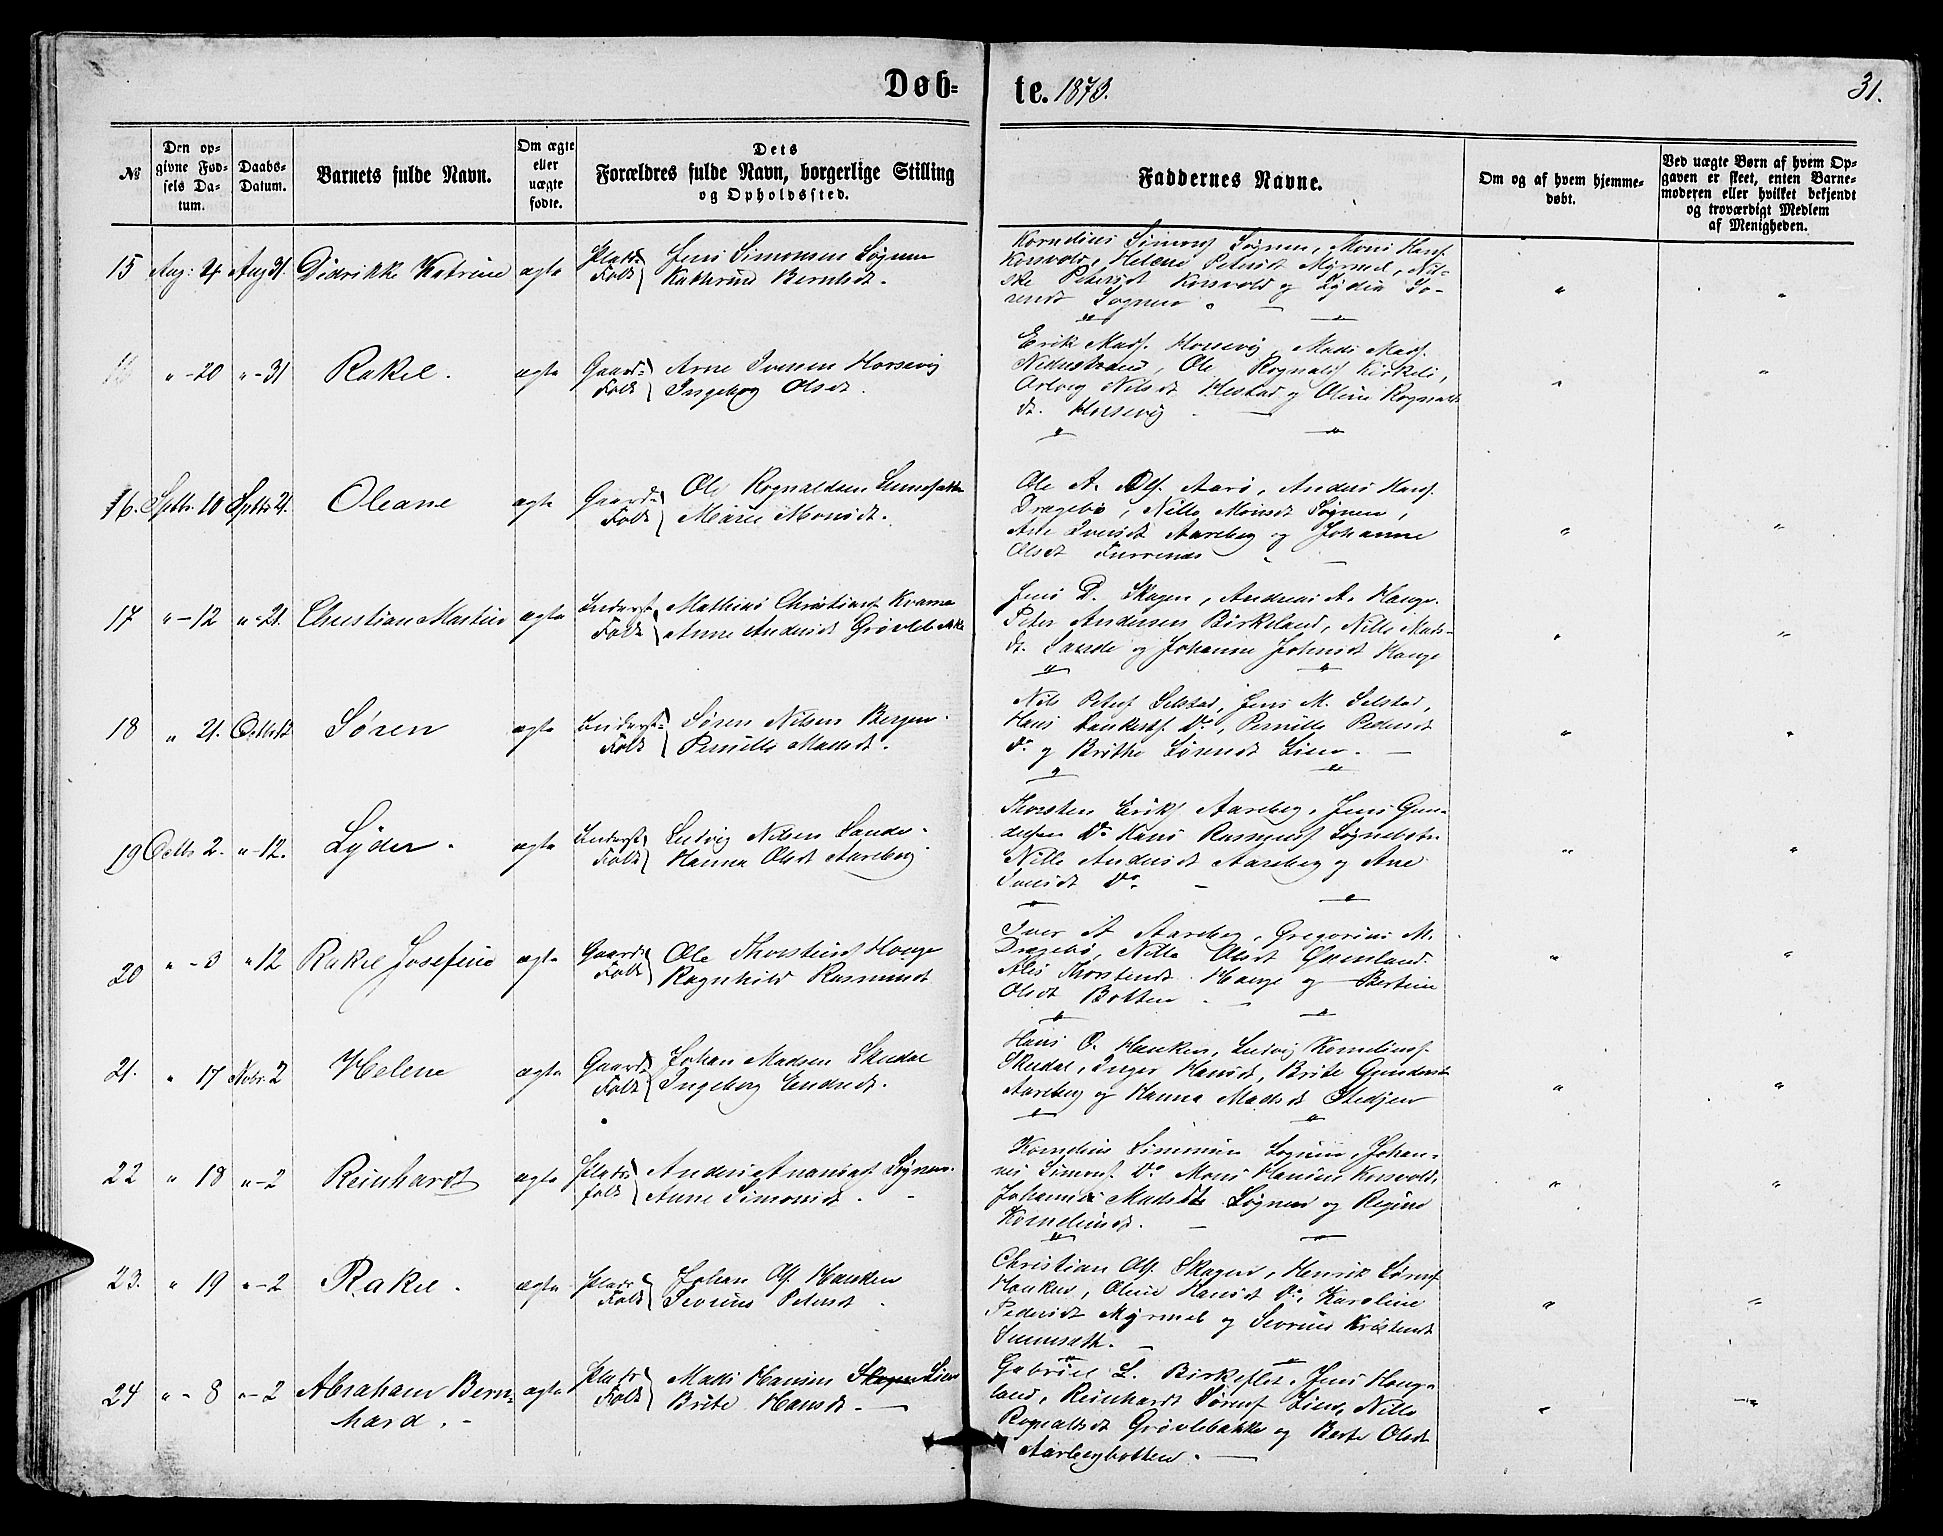 Døb-
te. 1873.
31.
№
Den op-
givne Fød-
sels Da-
tum.
Daabs-
Datum.
Barnets fulde Navn.
Om ægte
eller
uægte
fødte.
Dets
Forældres fulde Navn, borgerlige Stilling
og Opholdssted.
Faddernes Navne.
Om og af hvem hjemme-
døbt.
Ved uægte Børn af hvem Op-
gaven er skeet, enten Barne-
moderen eller hvilket bekjendt
og troværdigt Medlem
af Menigheden.
15 Aug: 4 Aug 31 Didrikke Katrine ægte Plads Folk Jens Simonsen Søgnen
Katharine Berntsdt.
Kornelius Simons Søgnen, Mons Hans
Korsvold, Helene Petersdt Myrmel, Nil-
Petersdt Korsvold og Lydia So-
Søgnen
" - 20 " - 31 Rakel. ægte Gaard- Folk Arne Iversen Horsevig
Ingeborg Olsdt.
Erik Mads. Horsevig, Mads Mads.
Ole Rognalds Kirkeli,
Nilsdt Hestad og Oline Rognalds
dt. Horsevig
16. Septbr. 10 Septbr 21. Oleane ægte Gaard- Folk Ole Rognaldsen
Marie Monsdt.
Ole A. Aarø, Anders Hans.
Dragebø, Nille Monsdt Søgnen,
Ane Iversdt Aareberg og Johanne
Olsdt Furrenes
17 " - 12 " - 21. Christian Martin ægte Inderst Folk Mathias Christians Kvamme
Anne Andersdt Grøvlebakke
Jens D. Skagen, Andreas A. Hauge.
Peter Andersen Birkeland, Nille Mads-
dt. Sande og Johanne Johnsdt Hauge
18 " 21. Søren ægte Inderst- Folk Søren Nilsen Bergen.
Pernille Madsdt.
Nils Peters Selstad, Jens M. Selstad,
Hans Do, Pernille Pedersdt
Do og Brithe Sørensdt Lien.
19 Octbr 2. " - 12. Lyder. ægte Inderst Folk Ludvig Nilsen Sande.
Hanna Olsdt Aareberg.
Thorsten Eriks Aareberg, Jens Gun-
dersen Do Hans Rasmus
Nille Andersdt Aareberg og Ane
Iversdt Do
20 " - 3 " 12 Rakel Josefine ægte Gaard- Folk Ole Thorsteins Hauge
Ragnhild Rasmusdt
Iver A Aareberg, Gregorius M.
Dragebø, Nille Olsdt Grønland.
Thorstensdt Hauge og Bertine
Olsdt Botten
21. " 17 Novbr. 2 Helene ægte Gaard- Folk Johan Madsen Skudal
Ingeborg Endredt.
Hans O. Hauken, Ludvig Kornelius
Skudal, Inger Hansdt, Brite Gundersdt
Aareberg og Hanna Madsdt Stedjen
22 " 18 " - 2 Reinhardt ægte Plads folk Anders Søgnen.
Anne Simonsdt.
Kornelius Simonsen Søgnen, Johan-
nes Simons. Do. Mons Hansen Korsvold,
Johanne Madsdt Søgnen og Regine
Korneliusdt.
23. " 19 " - 2 Rakel. ægte Plads Folk Johan Ols. Hauken
Severine Petersdt.
Christian Ols. Skagen, Henrik Sørens
Hauken, Oline Hansdt Do, Karoline
Pedersdt Myrmel og Severine
24 " - 8 " - 2 Abraham Bern-
hard. ægte Plads Folk Mads Hansen Skagen Lien
Brite Hansdt.
Gabriel L. Birkeflet, Jens Haug-
land, Reinhardt Sørens Lien, Nille
Rognaldsdt Grøvlebakke og Berte Olsdt
Aarbergbotten.